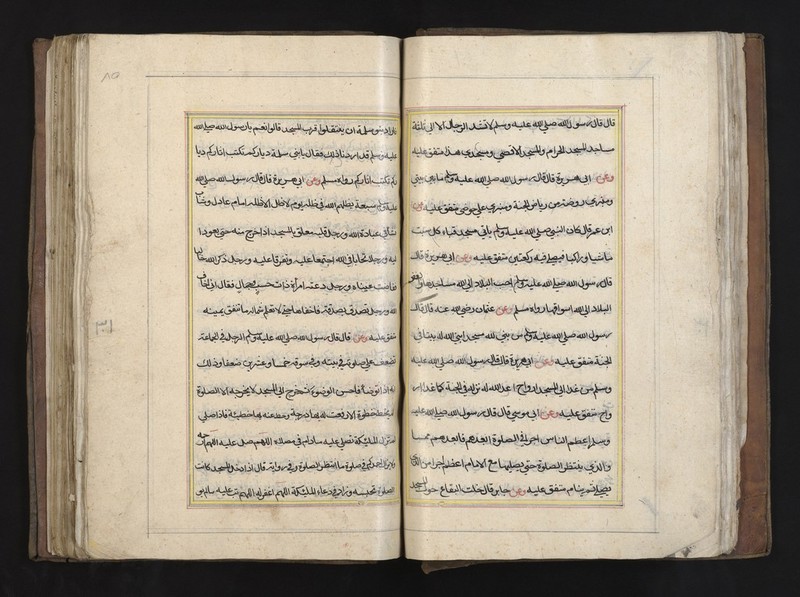 قال قال رسول الله صلى الله عليه وسلم لا تشد الرحال الا الى ثلثة
مساجد المسجد الحرام والمسجد الاقصى ومسجدي هذا متفق عليه
وعن ابى هريرة قال قال رسول الله صلى الله عليه وسلم ما بين بيتى
ومنبرى روضة من رياض الجنة ومنبرى على حوضى متفق عليه وعن
ابن عمر قال كان النبى صلى الله عليه وسلم ياتى مسجد قباء كل سبت
ماشيا وراكبا فيصلى فيه ركعتين متفق عليه وعن ابى هريرة قال
قال رسول الله صلى الله عليه وسلم احب البلاد الى الله مساجدها وابغض
البلاد الى الله اسواقها رواه مسلم وعن عثمان رضى الله عنه قال قال
رسول الله صلى الله عليه وسلم من بنى لله مسجدا بنى الله له بيتا فى
الجنة متفق عليه وعن ابى هريرة قال قال رسول الله صلى الله عليه
وسلم من غدا الى المسجد او راح اعد الله له نزله فى الجنة كلما غدا او
راح متفق عليه وعن ابى موسى قال قال رسول الله صلى الله عليه
وسلم اعظم الناس اجرا فى الصلوة ابعدهم فابعدهم ممشا
والذى ينتظر الصلوة حتى يصليها مع الامام اعظم اجرا من الذى
يصلى ثم ينام متفق عليه وعن جابر قال خلت البقاع حول المسجد
فاراد بنو سلمة ان ينتقلوا قرب المسجد قالوا نعم يا رسول الله صلى الله
عليه وسلم قد اردنا ذلك فقال يا بنى سلمة دياركم تكتب اثاركم ديا
ركم تكتب اثاركم رواه مسلم وعن ابى هريرة قال قال رسول الله صلى الله
عليه وسلم سبعة يظلهم الله فى ظله يوم لا ظل الا ظله امام عادل وشاب
نشأ فى عبادة الله ورجل قلبه معلق بالمسجد اذا خرج منه حتى يعود ا
ليه ورجلان تحابا فى الله اجتمعا عليه وتفرقا عليه ورجل ذكر الله خاليا
ففاضت عيناه ورجل دعته امرأة ذات حسب وجمال فقال انى اخاف
الله ورجل تصدق بصدقة فاخفاها حتى لا تعلم شماله ما تنفق يمينه
متفق عليه وعن قال قال رسول الله صلى الله عليه وسلم صلوة الرجل فى الجماعة
تضعف على صلوته فى بيته وفى سوقه خمسا وعشرين ضعفا وذلك
انه اذا توضأ فاحسن الوضوء ثم خرج الى المسجد لا يخرجه الا الصلوة
لم يخط خطوة الا رفعت له بها درجة وحط عنه بها خطيئة فاذا صلى
لم تزل الملئكة تصلى عليه ما دام فى مصلاه اللهم صل عليه اللهم ارحمه
ولا يزال احدكم فى صلوة ما انتظر الصلوة وفى رواية قال اذا دخل المسجد كانت
الصلوة تحبسه وزاد فى دعاء الملئكة اللهم اغفر له اللهم تب عليه ما لم يو